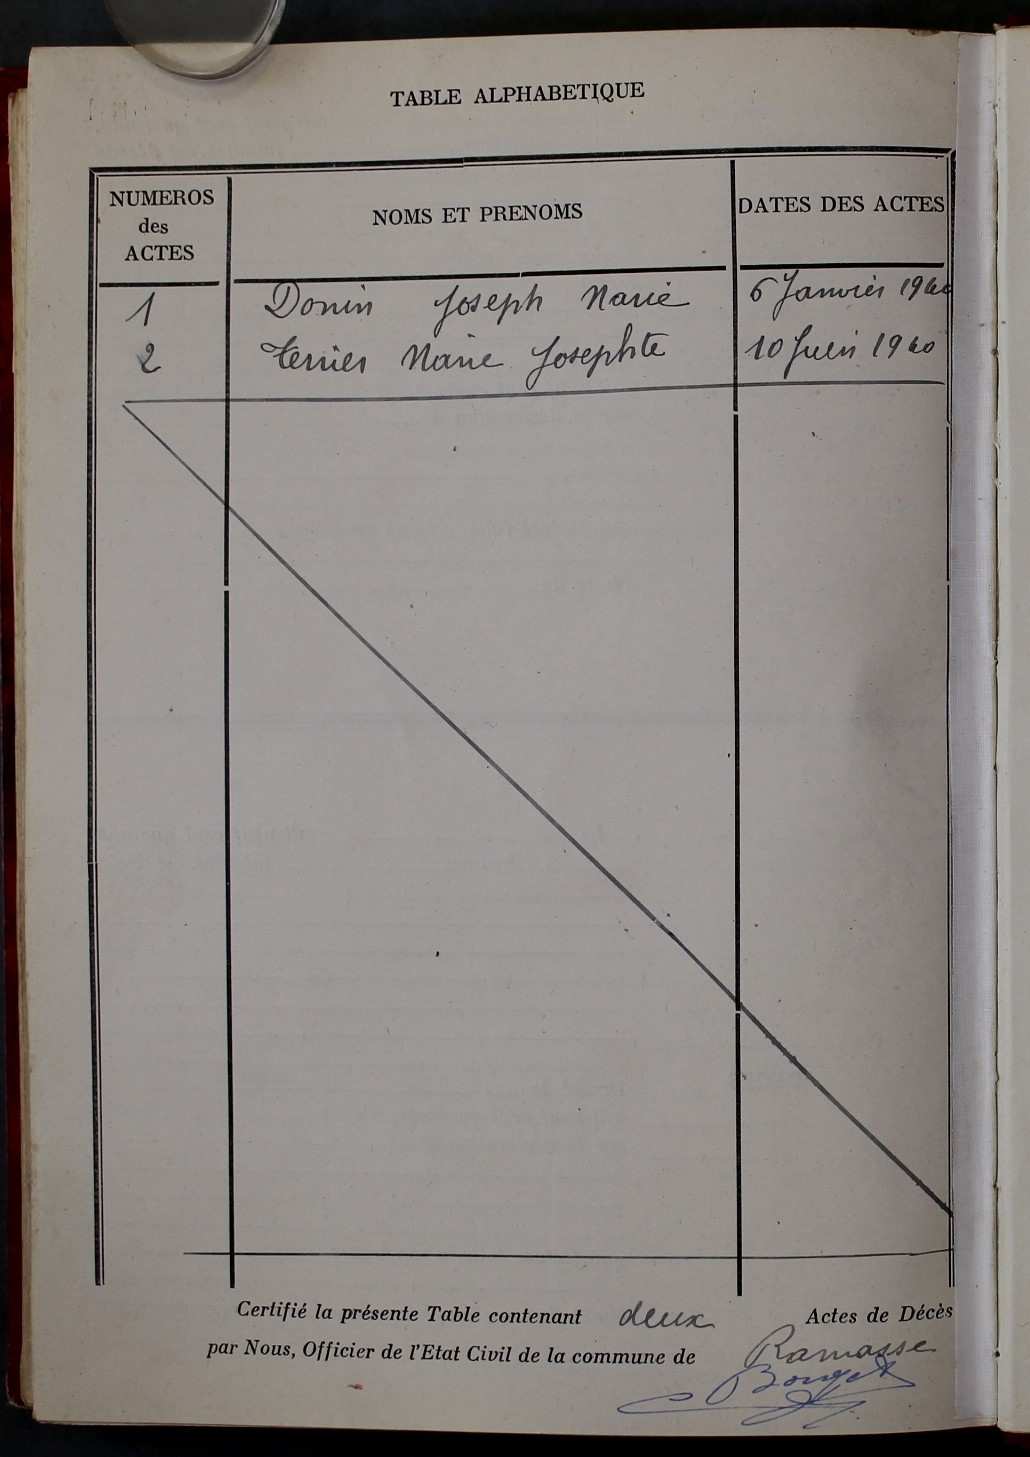 TABLE ALPHABETIQUE
NUMEROS
des
ACTES
NOMS ET PRENOMS
DATES DES ACTES
1 Donin Joseph Marie 6 Janvier 1940
2 Terrier Marie Josephte 10 Juin 1940
Certifié la présente Table contenant deux Actes de Décès
par Nous, Officier de l'Etat Civil de la commune de Ramasse